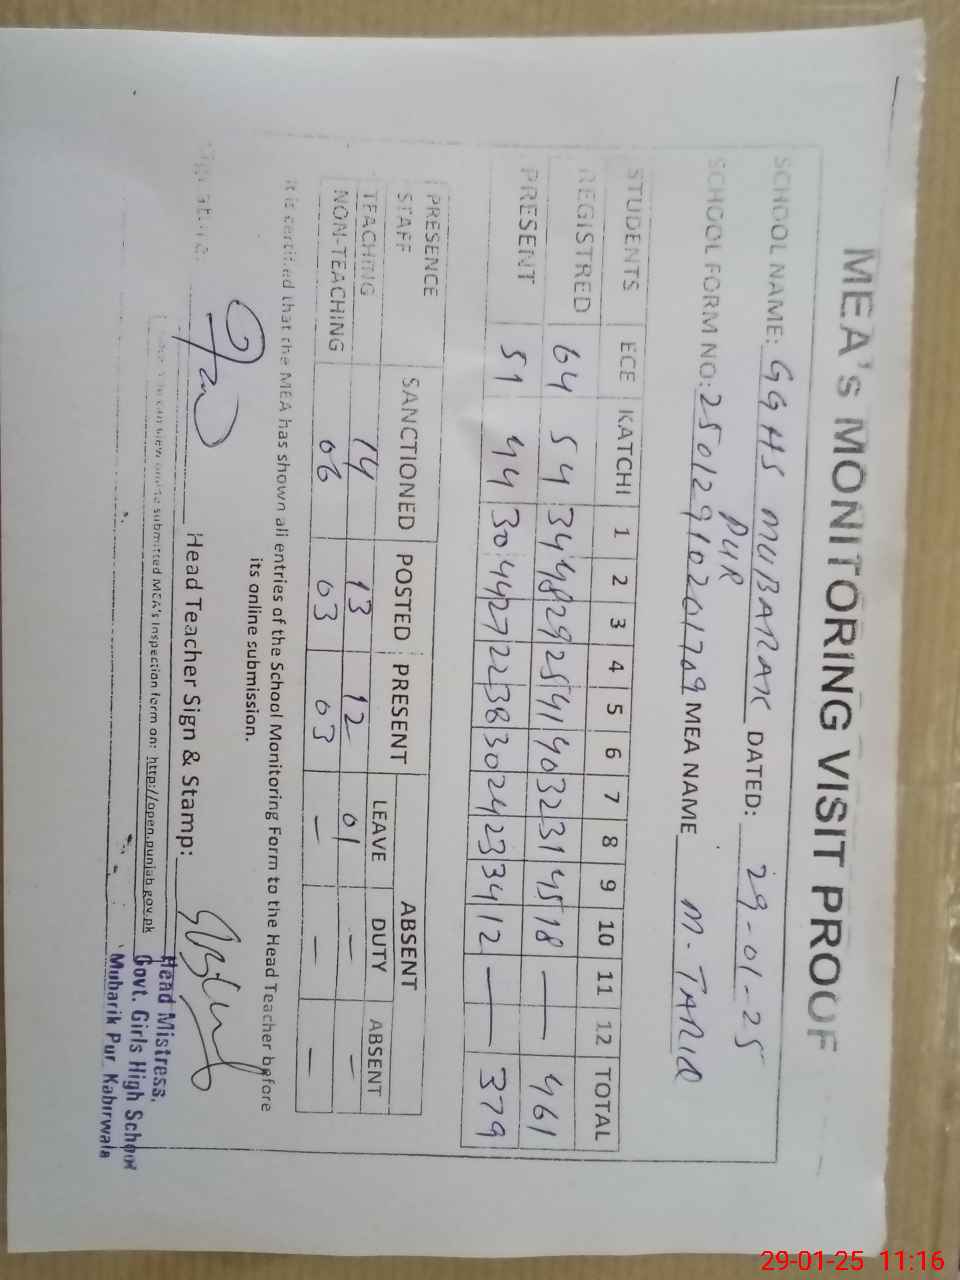 MEA's MONITORING VISIT PROOF
SCHOOL NAME: GGHS MUBARAK PUR DATED: 29-01-25
SCHOOL FORM NO: 25012910201709 MEA NAME M. TARIQ
STUDENTS ECE KATCHI 1 2 3 4 5 6 7 8 9 10 11 12 TOTAL
REGISTRED 64 54 34 48 29 25 41 40 32 31 45 18 — 461
PRESENT 51 44 30 44 27 22 38 30 24 23 34 12 — 379
PRESENCE STAFF SANCTIONED POSTED PRESENT ABSENT
LEAVE DUTY ABSENT
TEACHING 14 13 12 01 — —
NON-TEACHING 06 03 03 — — —
It is certified that the MEA has shown all entries of the School Monitoring Form to the Head Teacher before
its online submission.
Head Teacher Sign & Stamp:
can view online submitted MEA's Inspection form on: http://open.punjab.gov.pk
Head Mistress,
Govt. Girls High School
Mubarik Pur Kabirwala
29-01-25 11:16